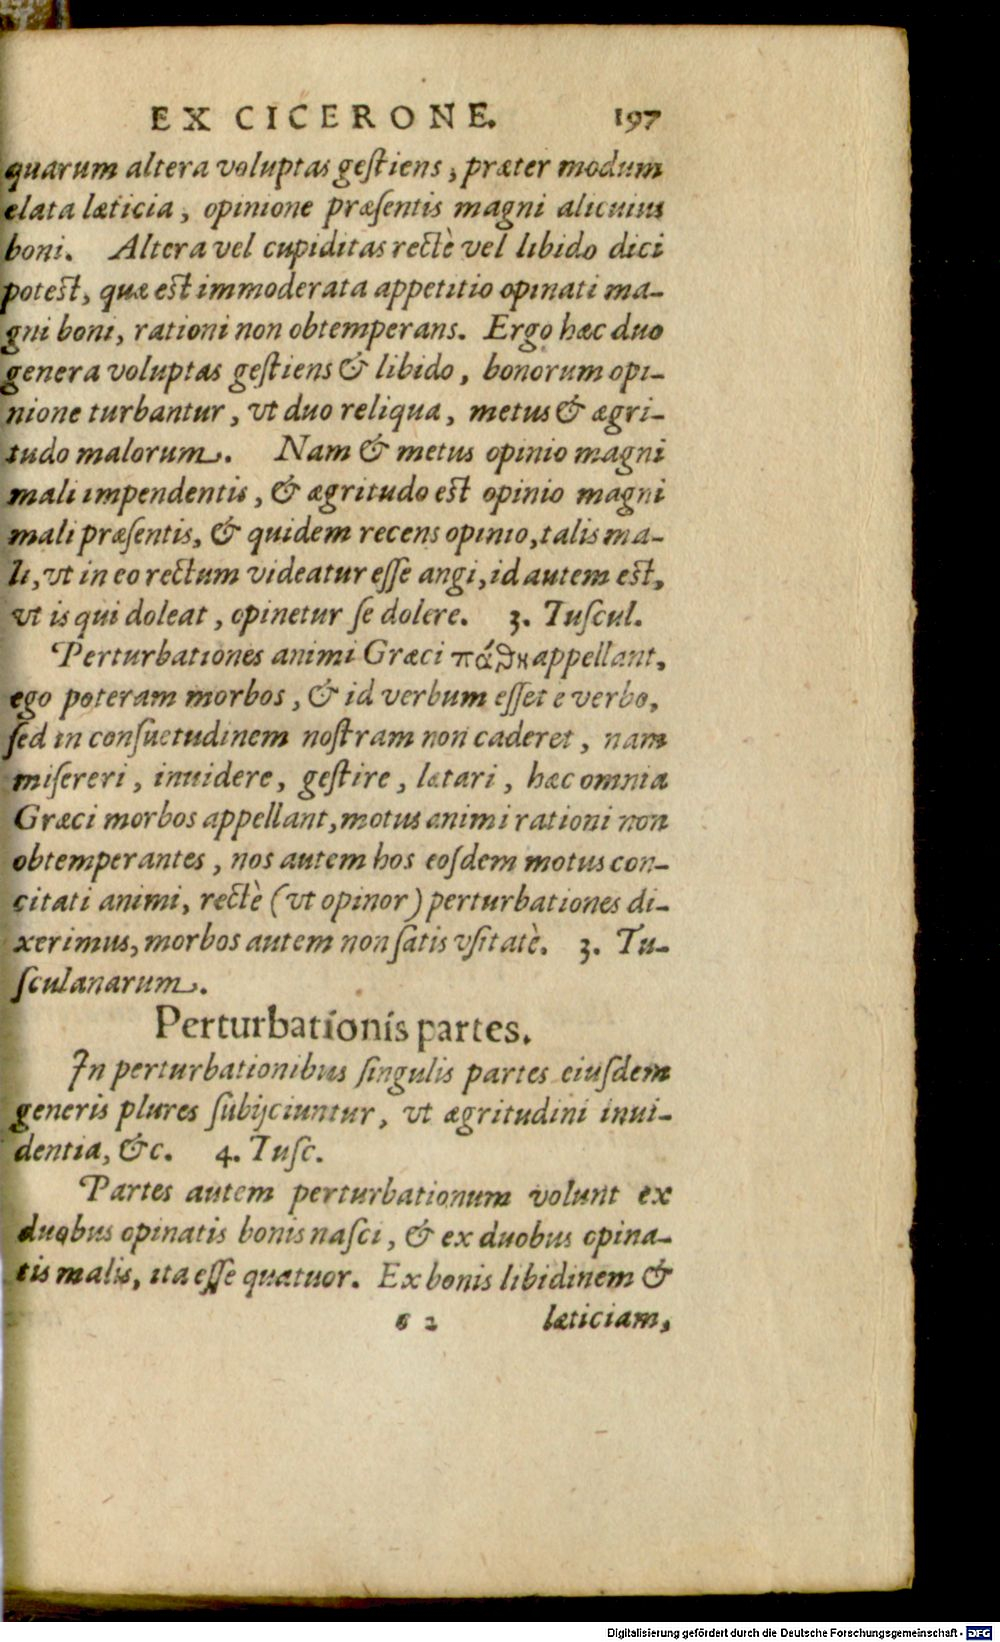 EX CICERONE. 197
quarum altera voluptas gestiens, præter modum
elata læticia, opinione præsentis magni alicuius
boni. Altera vel cupiditas rectè vel libido dici
potest, quæ est immoderata appetitio opinati ma-
gni boni, rationi non obtemperans. Ergo hæc duo
genera voluptas gestiens & libido, bonorum opi-
nione turbantur, vt duo reliqua, metus & ægri-
tudo malorum. Nam & metus opinio magni
mali impendentis, & ægritudo est opinio magni
mali præsentis, & quidem recens opinio, talis ma-
li, vt in eo rectum videatur esse angi, id autem est,
vt is qui doleat, opinetur se dolere. 3. Tuscul.
Perturbationes animi Græci πάθη appellant,
ego poteram morbos, & id verbum esset e verbo,
sed in consuetudinem nostram non caderet, nam
misereri, inuidere, gestire, lætari, hæc omnia
Græci morbos appellant, motus animi rationi non
obtemperantes, nos autem hos eosdem motus con-
citati animi, rectè (vt opinor) perturbationes di-
xerimus, morbos autem non satis vsitatè. 3. Tu-
sculanarum.
Perturbationis partes.
In perturbationibus singulis partes eiusdem
generis plures subijciuntur, vt ægritudini inui-
dentia, &c. 4. Tusc.
Partes autem perturbationum volunt ex
duobus opinatis bonis nasci, & ex duobus opina-
tis malis, ita esse quatuor. Ex bonis libidinem &
2 læticiam,
Digitalisierung gefördert durch die Deutsche Forschungsgemeinschaft - DFG